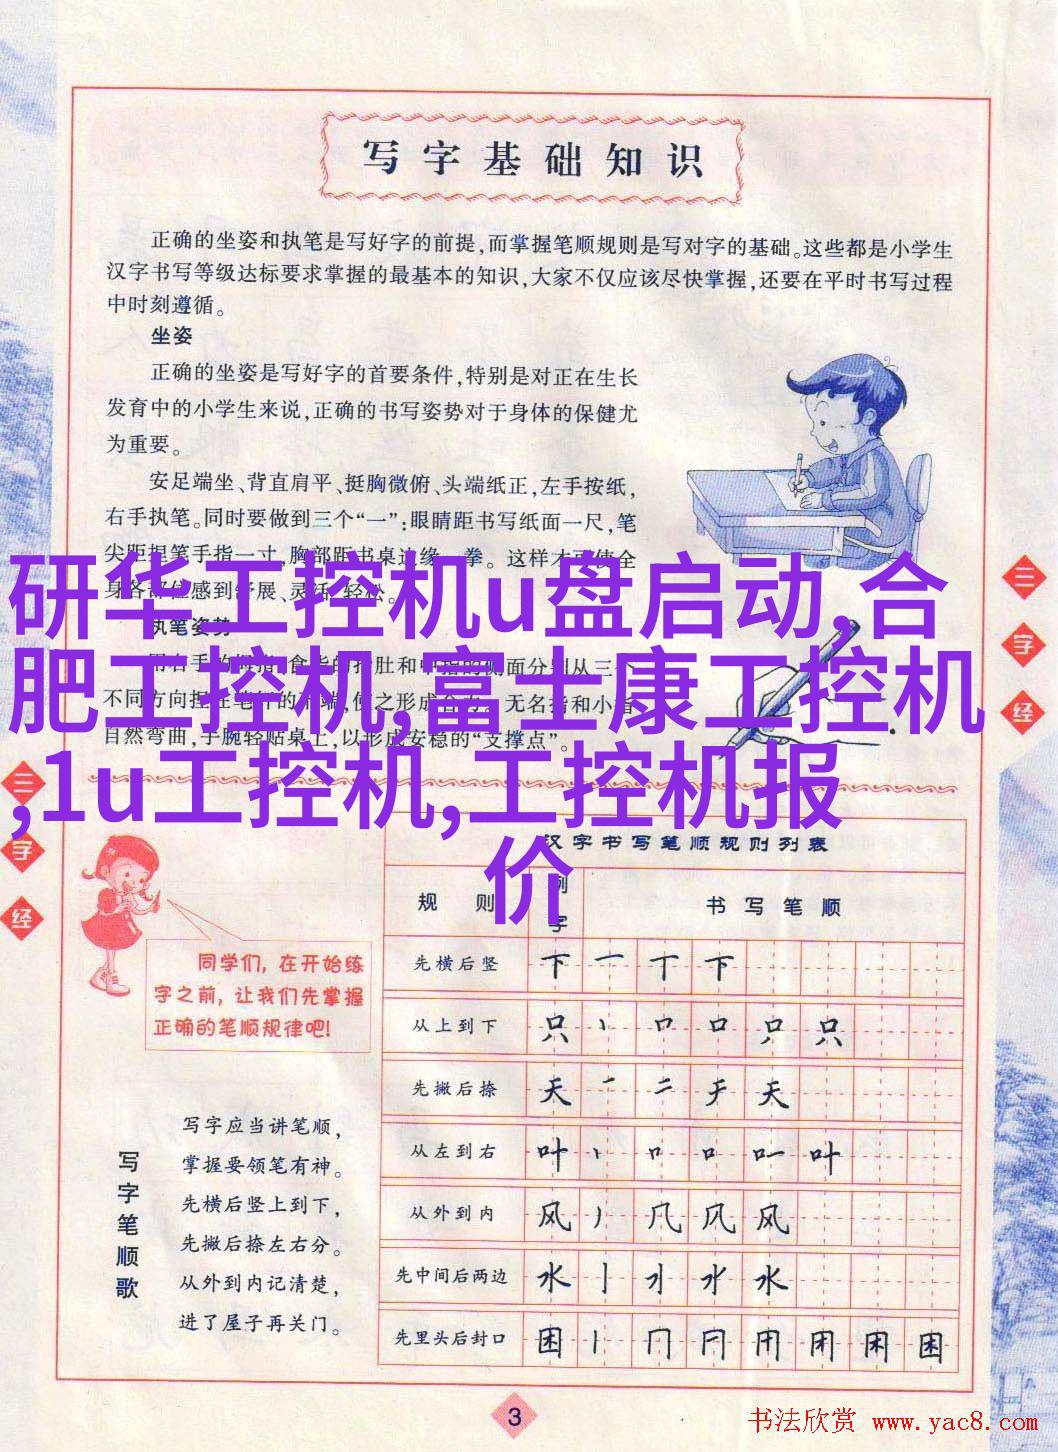 写字基础知识
正确的坐姿和执笔是写好字的前提,而掌握笔顺规则是写对字的基础。这些都是小学生
汉字书写等级达标要求掌握的最基本的知识,大家不仅应该尽快掌握,还要在平时书写过程
中时刻遵循。
坐姿
正确的坐姿是写好字的首要条件,特别是对正在生长
发育中的小学生来说,正确的书写姿势对于身体的保健尤
为重要。
安足端坐、背直肩平、挺胸微俯、头端纸正,左手按纸,
右手执笔。同时要做到三个“一”:眼睛距书写纸面一尺,笔
尖距捏笔手指一寸,胸部距书桌边缘一拳。这样才可使全
身各部位感到舒展、灵活、轻松。
执笔姿势
研华工控机u盘启动,合
肥工控机,富士康工控机
,1u工控机,工控机报
价
不同方向捏住笔杆的下端,使之形成合力。无名指和小指
自然弯曲,手腕轻贴桌上,以形成安稳的“支撑点”。
三字经
三字经
同学们,在开始练
字之前,让我们先掌握
正确的笔顺规律吧!
写字笔顺歌
写字应当讲笔顺,
掌握要领笔有神。
先横后竖上到下,
先撇后捺左右分。
从外到内记清楚,
进了屋子再关门。
汉字书写笔顺规则列表
规则 例字 书写笔顺
先横后竖 下 一 丅 下
从上到下 只 丶 口 口 只
先撇后捺 天 一 二 天
从左到右 叶 丨 口 口 叶
从外到内 风 丿 几 风 风
先中间后两边 水 亅 水
先里头后封口 困 丨 冂 困
3
书法欣赏 www.yac8.com